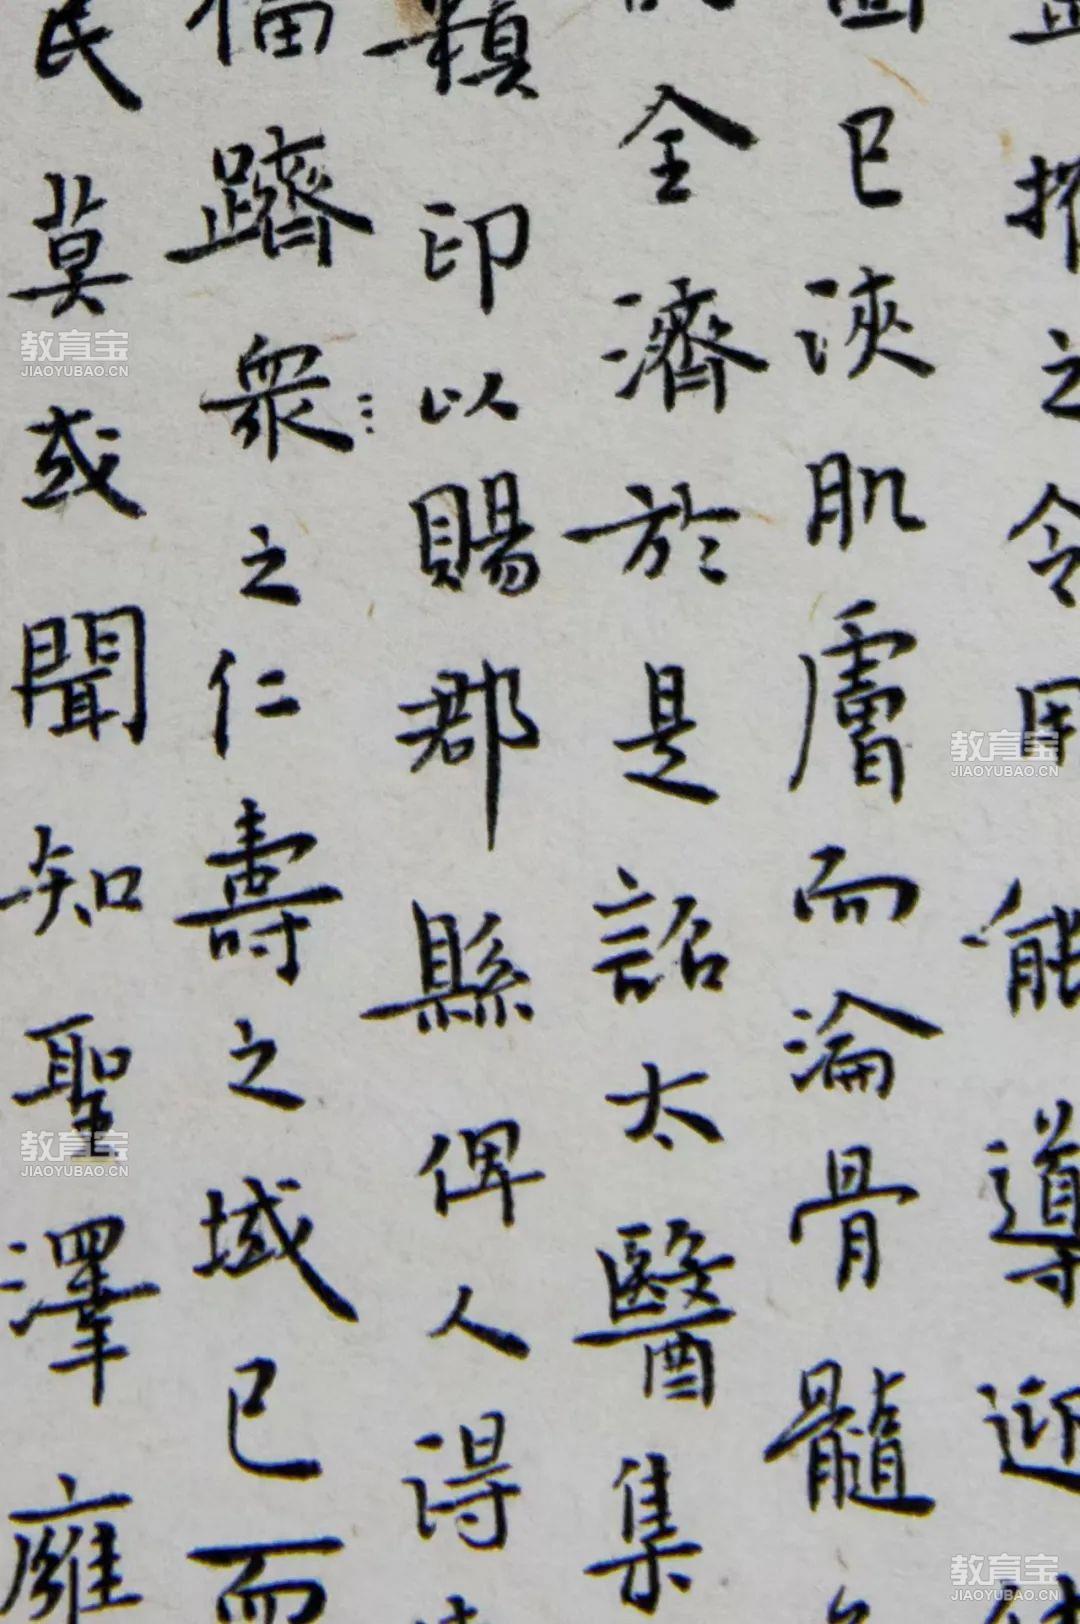 之令用能導迎
已浹肌膚而淪骨髓
全濟於是詔太醫集
類印以賜郡縣俾人得
福躋衆之仁壽之域已而
民莫或聞知聖澤癰
教育宝
JIAOYUBAO.CN
教育宝
JIAOYUBAO.CN
教育宝
JIAOYUBAO.CN
教育宝
JIAOYUBAO.CN